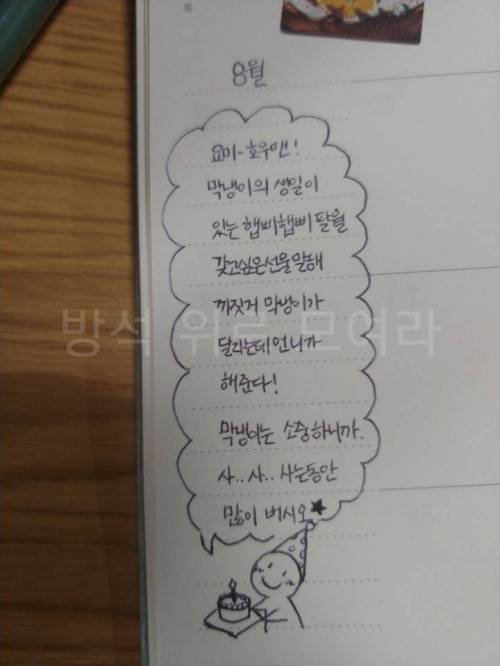 8월
요미-호우앤!
막냉이의 생일이
있는 햅삐햅삐 팔월
갖고싶은선물말해
까짓거 막냉이가
달라는데 언니가
해준다!
막냉이는 소중하니까.
사.. 사.. 사는동안
많이 버시오★
방석 위로 모여라